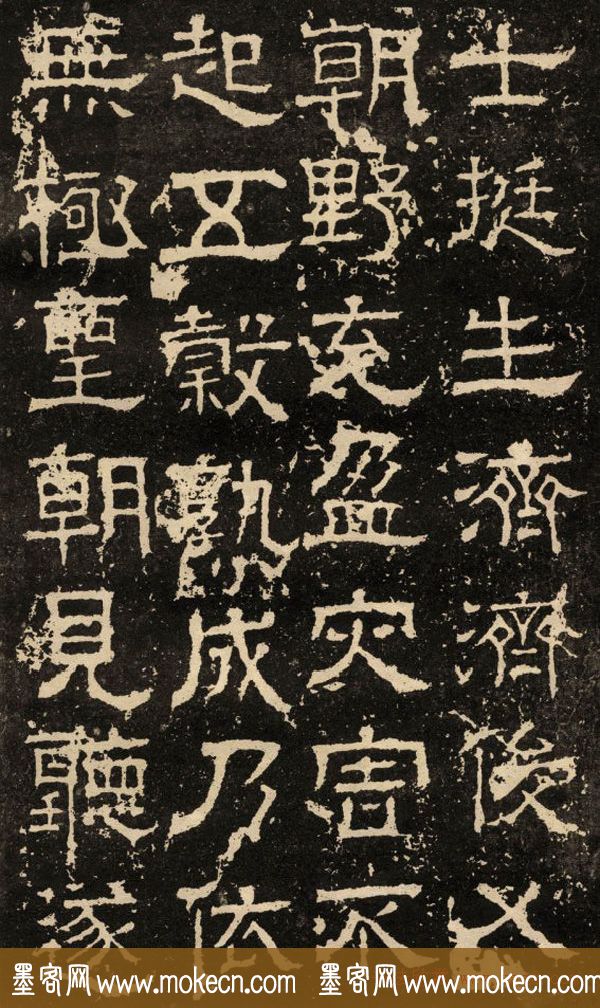 士挺生濟濟俊乂
朝野充盈灾害不
起五穀熟成乃依
無極聖朝見聽遂
墨客网 www.mokecn.com 墨客网 www.mokecn.com